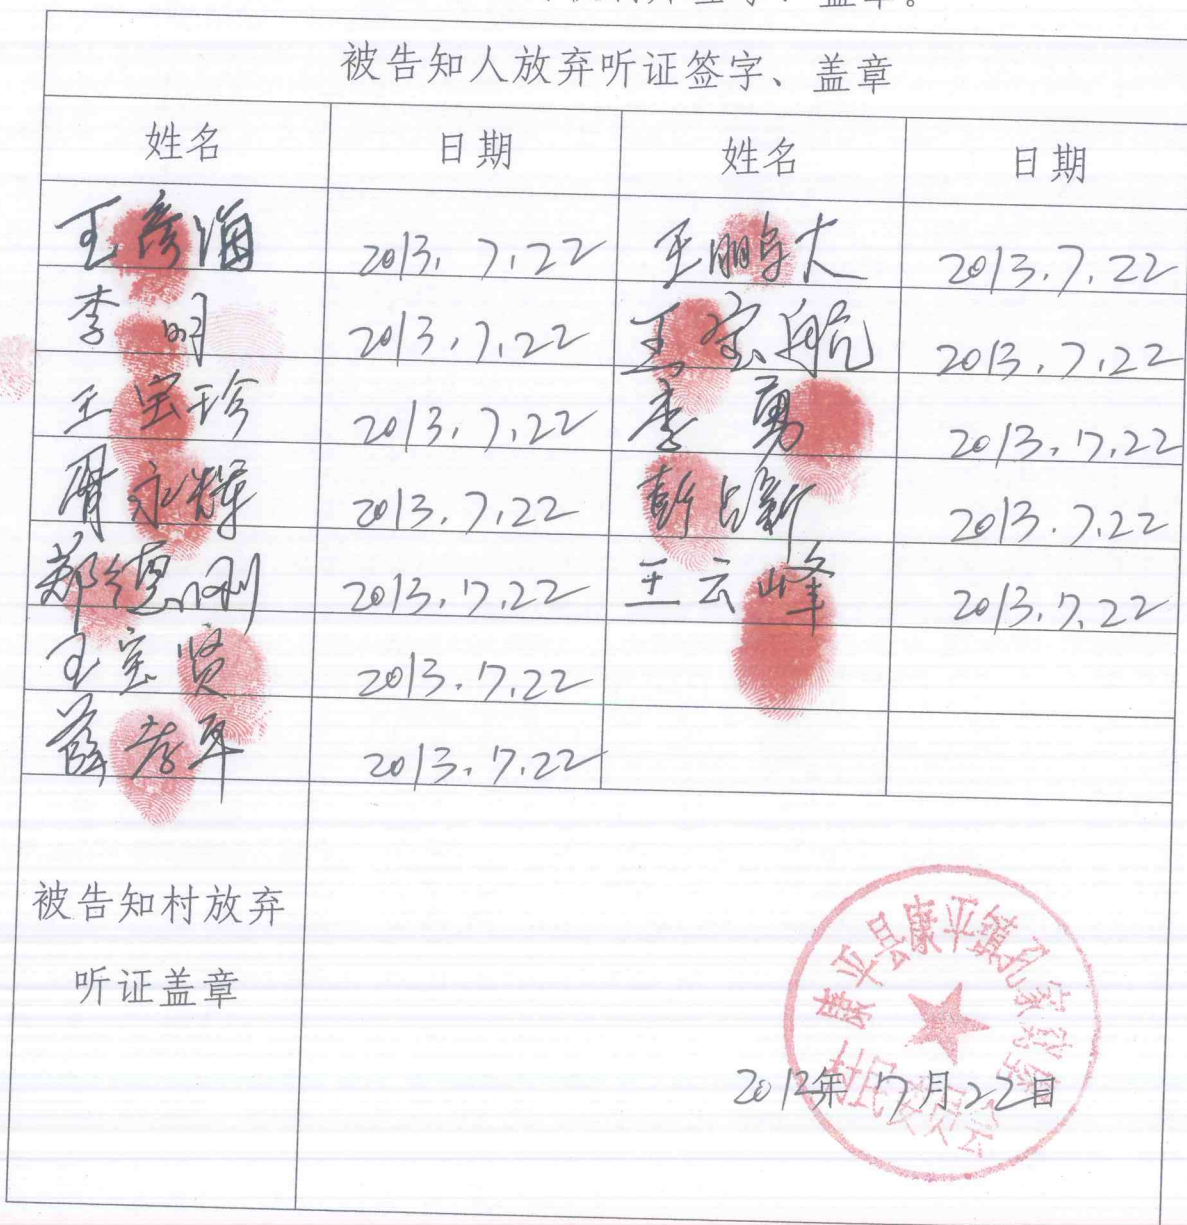 盖章。
被告知人放弃听证签字、盖章
姓名 日期 姓名 日期
王彦海 2013.7.22 王鹏大 2013.7.22
李明 2013.7.22 王宝航 2013.7.22
王宝珍 2013.7.22 李勇 2013.7.22
周永辉 2013.7.22 彭占新 2013.7.22
郑德刚 2013.7.22 王云峰 2013.7.22
王宝贤 2013.7.22
薛孝军 2013.7.22
被告知村放弃
听证盖章
康平县康平镇孔家窝堡
村民委员会
2012年7月22日